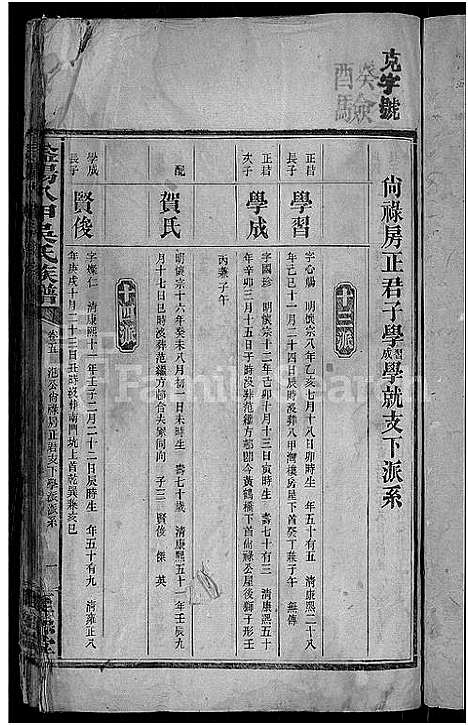 克字號
癸酉
尙祿房正君子學習成學就支下派系
十三派
正君長子
學習
字心鳴 明懷宗八年乙亥七月十八日卯時生 年五十有五 清康熙二十八
年己巳十一月二十四日辰時歿葬八甲灣樓房屋下首癸丁兼子午 無傳
正君次子
學成
字國珍 明懷宗十二年己卯十月十三日寅時生 壽七十有三 清康熙五十
年辛卯三月十五日子時歿葬范繼方鄰閭今黃鶴橋下首尙祿公屋後獅子形壬
丙兼子午
配
賀氏
明懷宗十六年癸未八月初一日未時生 壽七十歲 清康熙五十一年壬辰九
月十七日巳時歿葬范繼方鄰合夫冢同向 子三 賢俊 傑 英
十四派
學成長子
賢俊
字燦仁 清康熙十一年壬子二月二十二日辰時生 年五十有九 清雍正八
年庚戌十月二十二日丑時歿葬南門坑上首乾巽兼亥巳
益陽八甲吳氏族譜
卷五
尙祿房正君支下學派派系
一
FamilySearch